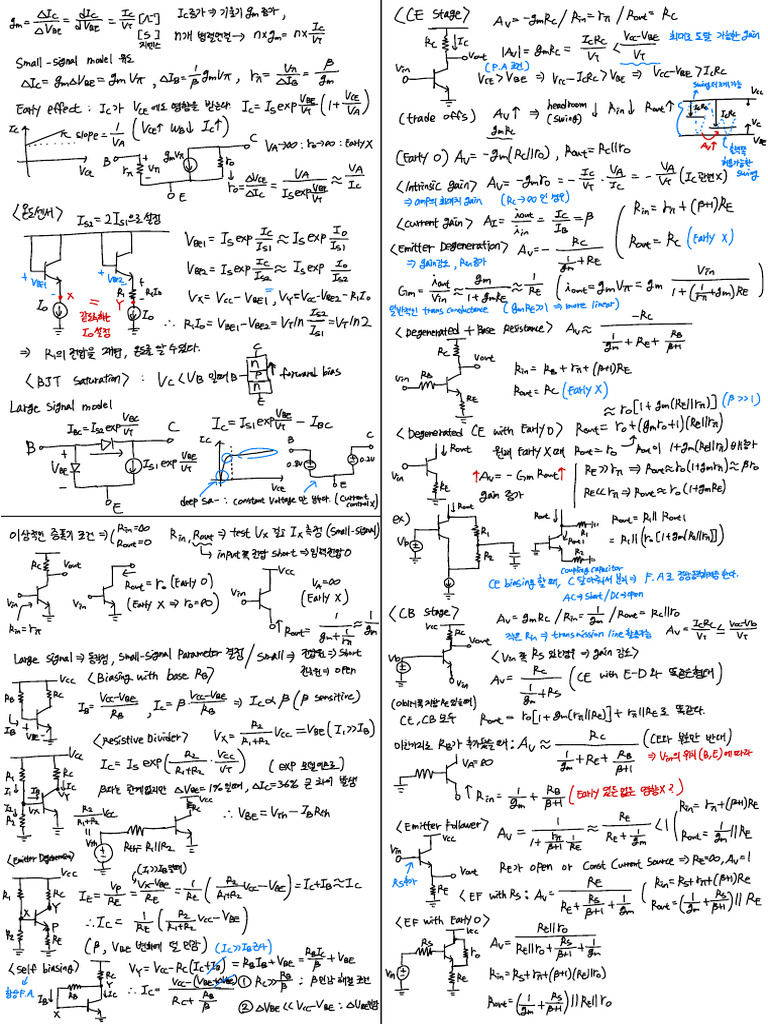 gm = ΔIc/ΔVBE = dIc/dVBE = Ic/VT [A/V] [S] Ic증가 ⇒ 기울기 gm 증가,
n개 병렬연결 → n×gm = n×Ic/VT
Small-signal model 유도
ΔIc = gmΔVBE = gmVπ, ΔIB = 1/β gmVπ, rπ = Vπ/ΔIB = β/gm
Early effect : Ic가 VCE에도 영향을 받는다 Ic = Is exp VBE/VT (1 + VCE/VA)
Ic slope = 1/VA (VCE↑ WB↓ Ic↑) VCE
B rπ Vπ gmVπ ro C E VA=∞ : ro=∞ : Early X
ro = ΔVCE/ΔIc = VA/(Is exp VBE/VT) ≈ VA/Ic
<온도센서> IS2 = 2IS1으로 설정
VBE1 = Is exp Ic/IS1 ≈ Is exp Io/IS1
VBE2 = Is exp Ic/IS2 ≈ Is exp Io/IS2
+ VBE1 - + VBE2 - X = Y R1 R1Io Io Io
VX = VCC - VBE1, VY = VCC - VBE2 - R1Io
∴ R1Io = VBE1 - VBE2 = VT ln IS2/IS1 = VT ln 2
⇒ R1의 전압을 재면, 온도를 알 수 있다.
<BJT Saturation> : VC < VB 일 때 B C n p n E forward bias
Large signal model
IBC = IS2 exp VBC/VT Ic = IS1 exp VBE/VT - IBC
B VBE IS1 exp VBE/VT C E Ic VCE B 0.8V C 0.2V E
deep Sa- : constant Voltage 만 남는다. (Current control X)
이상적인 증폭기 조건 ⇒ (Rin = ∞ Rout = 0
Rin, Rout ⇒ test VX 걸고 IX 측정 (small-signal)
↳ input 쪽 전압 short ⇒ 입력전압 0
VCC RC Vout Vin Rin = rπ
Rout = ro (Early O)
Vin (Early X ⇒ ro = ∞)
VCC Vin VA = ∞ (Early X)
Rout = 1/(gm + 1/rπ) ≈ 1/gm
Large signal ⇒ 동작점, small-signal Parameter 결정 / Small ⇒ 전압원 ⇒ short 전류원 ⇒ open
<Biasing with base RB>
IB = (VCC - VBE)/RB, Ic = β (VCC - VBE)/RB ⇒ Ic ∝ β (β sensitive)
<Resistive Divider> VX = R2/(R1+R2) VCC = VBE (I1 >> IB)
Ic = Is exp(R2/(R1+R2) · VCC/VT)
∴ VBE = Vth - IBRth
R2/(R1+R2) VCC = Vth Rth = R1||R2
<Emitter Degeneration> (I1 >> IB일 때)
IE = VP/RE = (VX - VBE)/RE = 1/RE (R2/(R1+R2) VCC - VBE) = Ic + IB ≈ Ic
∴ Ic = 1/RE (R2/(R1+R2) VCC - VBE)
(β, VBE 변화에 덜 민감)
<self biasing> 항상 F.A.
VY = VCC - RC(Ic + IB) = RBIB + VBE = RBIc/β + VBE
∴ Ic = (VCC - VBE)/(RC + RB/β) ① RC >> RB/β : β 민감 해결 조건
② ΔVBE << VCC - VBE : ΔVBE 민감
<CE Stage> Av = -gmRC / Rin = rπ / Rout = RC
VCC RC Ic Vout Vin
|Av| = gmRC = IcRC/VT < (VCC - VBE)/VT 최대로 도달 가능한 gain
(F.A 조건)
VCE > VBE ⇒ VCC - IcRC > VBE ⇒ VCC - VBE > IcRC
(trade offs) Av↑ ⇒ headroom↓ Rin↓ Rout↑
gmRC (swing)
(Early O) Av = -gm(RC||ro), Rout = RC||ro
<Intrinsic gain> Av = -gmro = -Ic/VT · VA/Ic = -VA/VT (Ic 관련 X)
⇒ amp의 최대치 gain (RC → ∞인 경우)
<Current gain> AI = iout/iin = Ic/IB = β
<Emitter Degeneration> Av = -RC/(1/gm + RE)
Rin = rπ + (β+1)RE
Rout = RC (Early X)
⇒ gain감소, Rin증가
Gm = iout/Vin ≈ gm/(1 + gmRE) ≈ 1/RE (iout = gmVπ = gm Vin/(1 + (1/rπ + gm)RE)
일반적인 transconductance (gmRE >> 1 ⇒ more linear)
<Degenerated + Base Resistance> Av ≈ -RC/(1/gm + RE + RB/(β+1))
VCC RC Vout Vin RB RE
Rin = RB + rπ + (β+1)RE
Rout = RC (Early X)
≈ ro[1 + gm(RE||rπ)] (β >> 1)
<Degenerated CE with Early O> Rout = ro + (gmro + 1)(RE||rπ)
원래 Early X 때 Rout = ro → Rout이 1 + gm(RE||rπ) 배 증가
Vin Rout RE
↑Av = -Gm Rout↑
gain 증가
RE >> rπ ⇒ Rout ≈ ro(1 + gmrπ) ≈ βro
RE << rπ ⇒ Rout ≈ ro(1 + gmRE)
ex) Vb Rout R1 R2 Rout1
Rout = R1||Rout1
= R1||[ro[1 + gm(R2||rπ)]]
coupling capacitor
AC → short / DC → open
<CB stage> Av = gmRC / Rin = 1/gm / Rout = RC||ro
작은 Rin ⇒ transmission line 활용가능 Av = IcRC/VT ≤ (VCC - Vb)/VT
VCC RC Vout Vb Vin
<Vin 쪽 Rs 있는경우 ⇒ gain 감소>
Av = RC/(1/gm + RS) (CE with E-D와 똑같은형태)
CE, CB 모두 Rout = ro[1 + gm(rπ||RE)] + rπ||RE로 똑같다.
마찬가지로 RB가 추가됐을 때 : Av ≈ RC/(1/gm + RE + RB/(β+1)) (CE와 부호만 반대)
⇒ Vin의 위치 (B, E)에 따라
VA = ∞ Rin = 1/gm + RB/(β+1)
<Emitter Follower> Av = 1/(1 + rπ/(β+1) · 1/RE) ≈ RE/(RE + 1/gm) < 1
Rin = rπ + (β+1)RE
Rout = 1/gm||RE
Vin VCC Vout RE RS추가
RE가 open or Const Current Source ⇒ RE = ∞, Av = 1
<EF with RS> : Av = RE/(RE + RS/(β+1) + 1/gm)
Rin = RS + rπ + (β+1)RE
Rout = (1/gm + RS/(β+1))||RE
<EF with Early O>
VCC RS Vin ro RE
Av = RE||ro/(RE||ro + RS/(β+1) + 1/gm)
Rin = RS + rπ + (β+1)(RE||ro)
Rout = (1/gm + RS/(β+1))||RE||ro